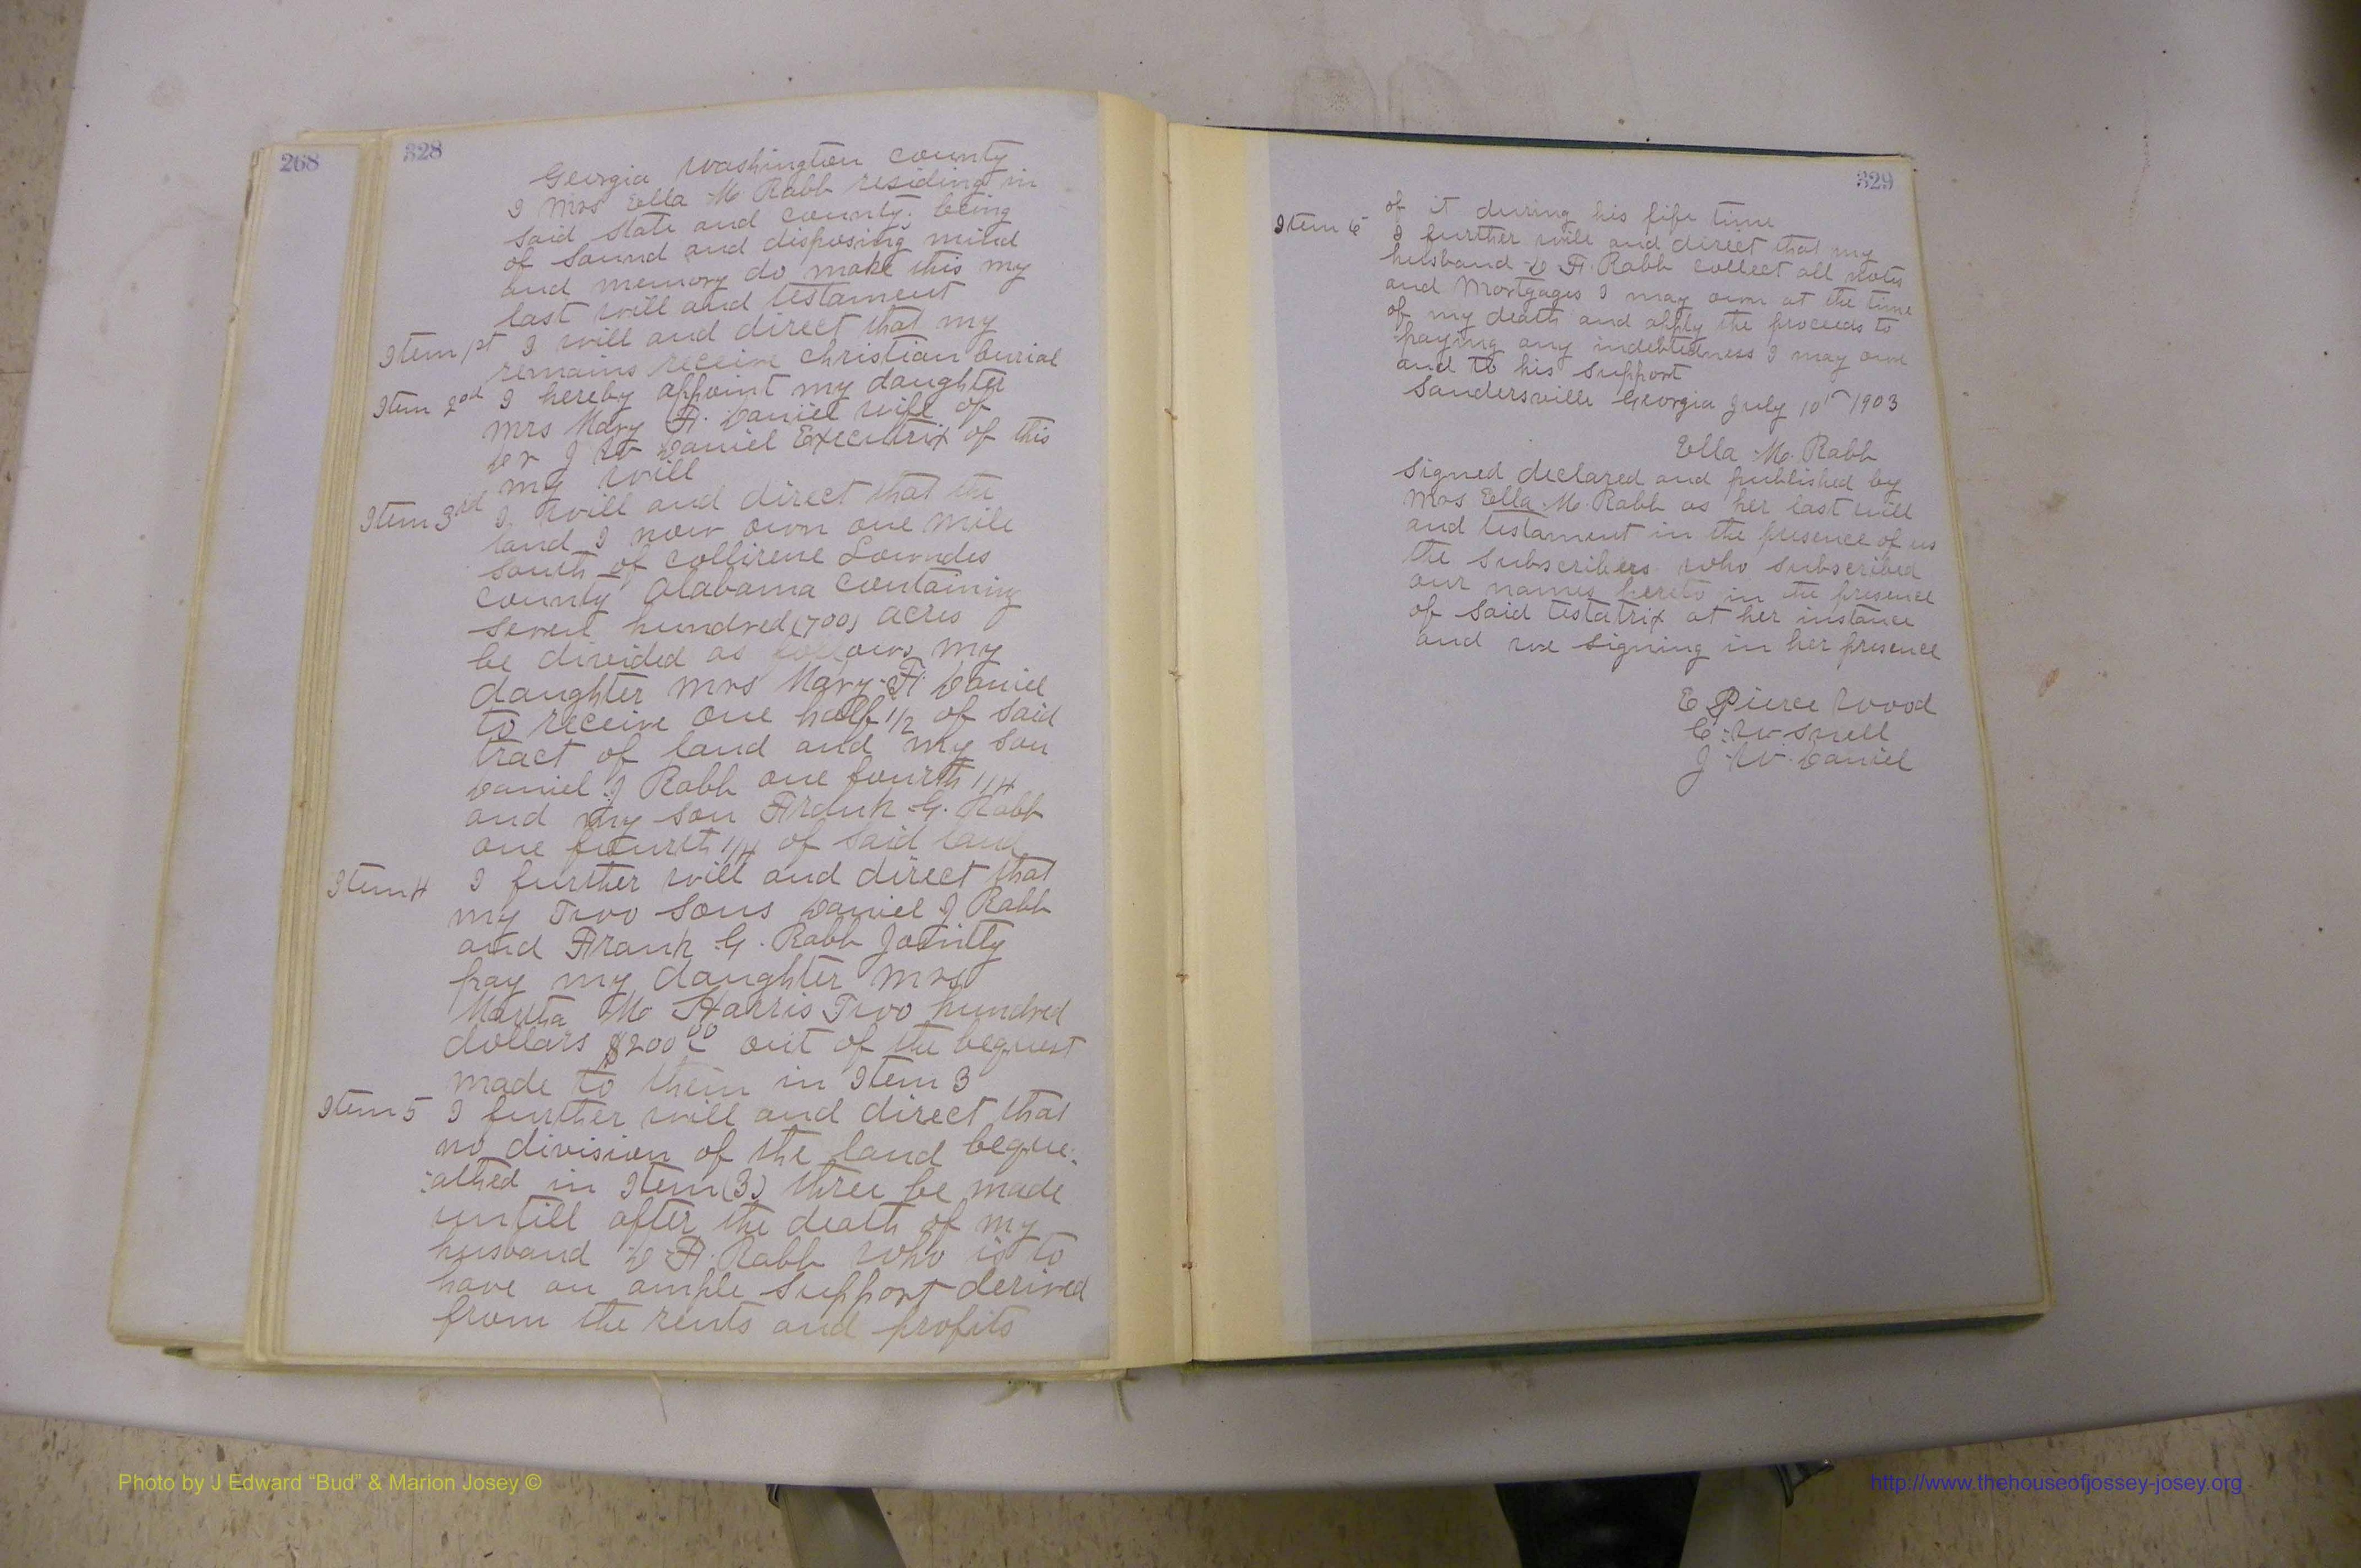 268
328
Georgia Washington County
I Mrs Ella M. Rabb residing in
said state and county, being
of sound and disposing mind
and memory do make this my
last will and testament
Item 1st I will and direct that my
remains receive christian burial
Item 2nd I hereby appoint my daughter
Mrs Mary F. Daniel wife of
Dr J W Daniel Executrix of this
my will
Item 3rd I will and direct that the
land I now own one mile
south of Collirene Lowndes
County Alabama containing
seven hundred (700) acres
be divided as follows my
daughter Mrs Mary F. Daniel
to receive one half 1/2 of said
tract of land and my son
Daniel J Rabb one fourth 1/4
and my son Frank G. Rabb
one fourth 1/4 of said land
Item 4 I further will and direct that
my Two sons Daniel J Rabb
and Frank G. Rabb Jointly
pay my daughter Mrs
M. Harris Two hundred
dollars $200 00 out of the bequest
made to them in Item 3
Item 5 I further will and direct that
no division of the land beque:
:athed in Item (3) three be made
untill after the death of my
husband D F. Rabb who is to
have an ample support derived
from the rents and profits
329
of it during his life time
Item 6 I further will and direct that my
husband D F. Rabb collect all notes
and Mortgages I may own at the time
of my death and apply the proceeds to
paying any indebtedness I may owe
and to his support
Sandersville Georgia July 10th 1903
Ella M. Rabb
Signed declared and published by
Mrs Ella M. Rabb as her last will
and testament in the presence of us
the subscribers who subscribed
our names hereto in the presence
of said testatrix at her instance
and we signing in her presence
E Pierce Wood
C. W Snell
J. W. Daniel
Photo by J Edward “Bud” & Marion Josey ©
http://www.thehouseofjossey-josey.org